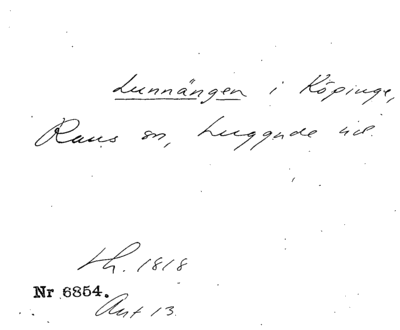 Lunnängen i Köpinge,
Raus sn, Luggude hd.
Lh. 1818
Nr 6854.
Avt 13.